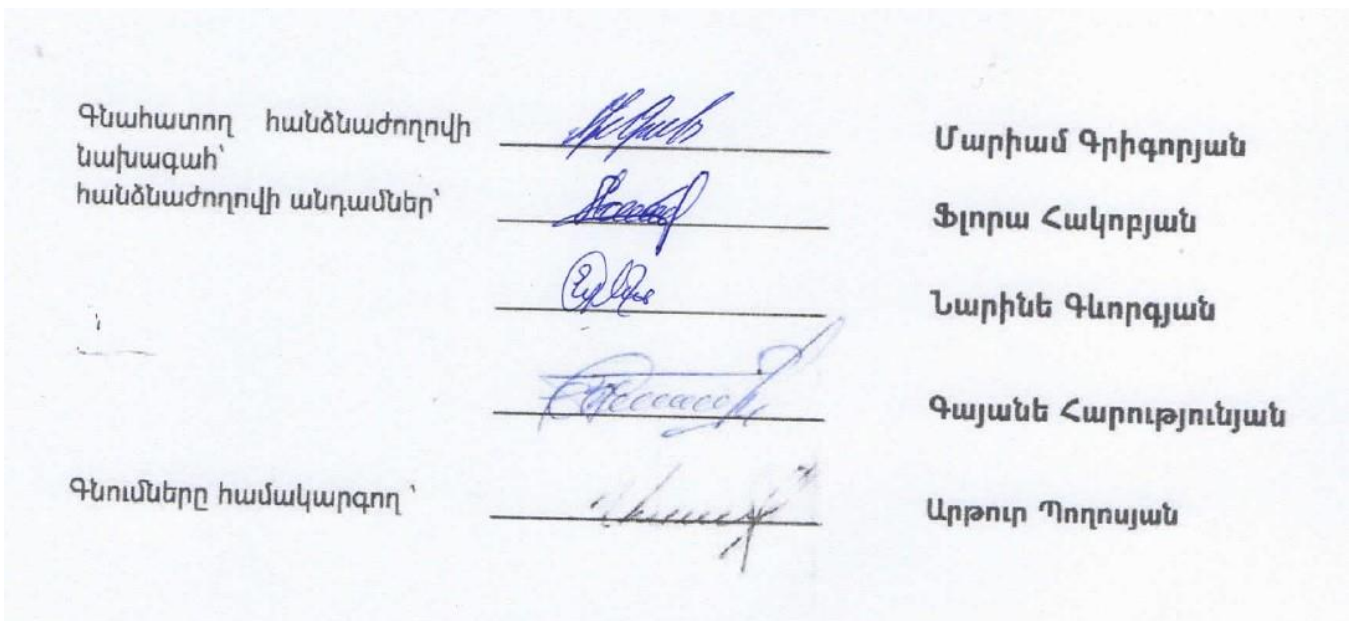 Գնահատող հանձնաժողովի
նախագահ՝
Մարիամ Գրիգորյան
հանձնաժողովի անդամներ՝
Ֆլորա Հակոբյան
Նարինե Գևորգյան
Գայանե Հարությունյան
Գնումները համակարգող ՝
Արթուր Պողոսյան